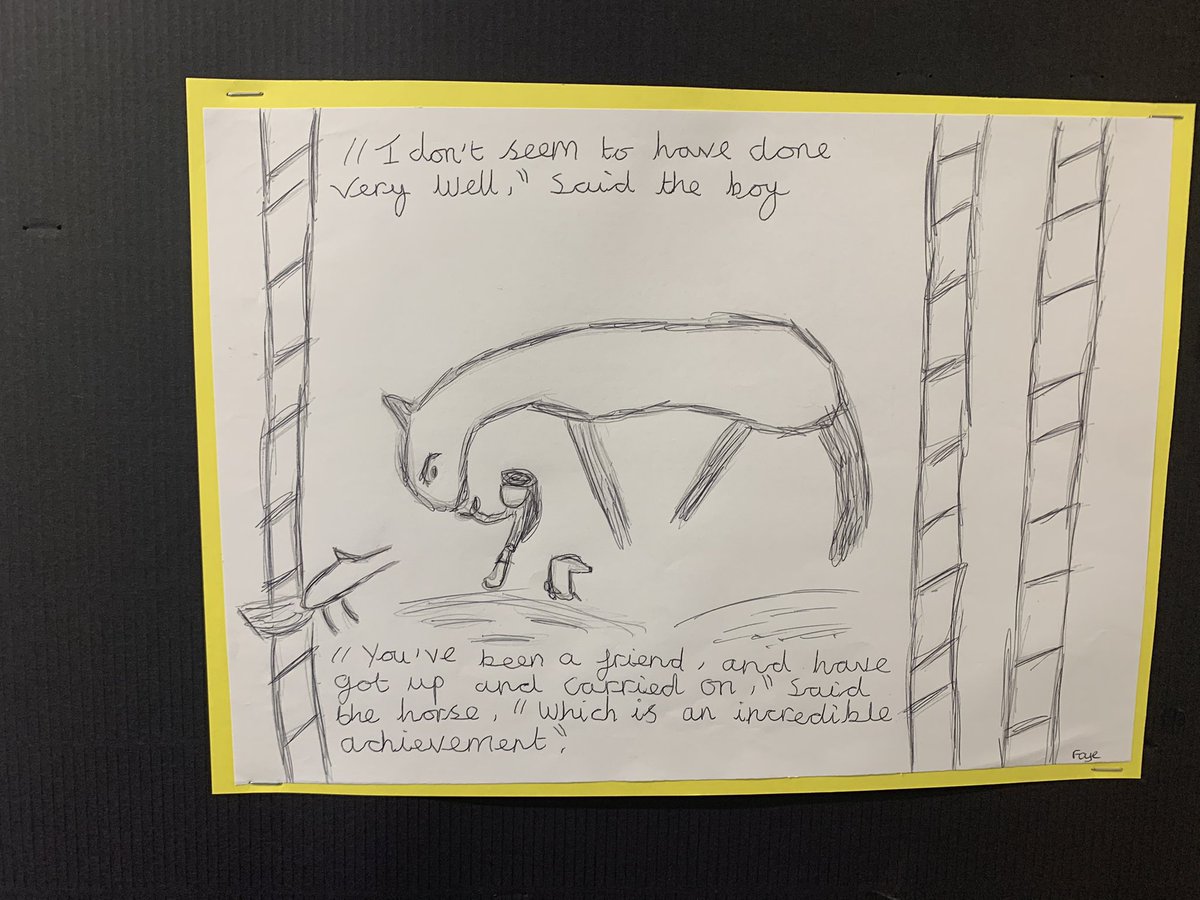 "I don't seem to have done
very well," said the boy
"You've been a friend, and have
got up and carried on," said
the horse, "Which is an incredible
achievement".
Faye